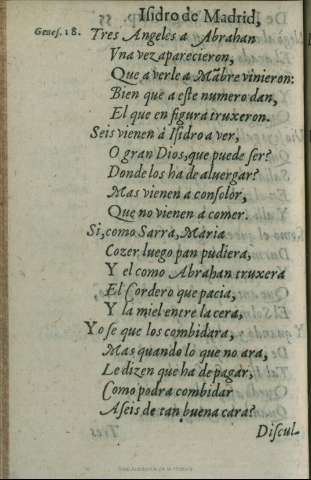 Isidro de Madrid,
Genes. 18. Tres Angeles a Abrahan
Vna vez aparecieron,
Que a verle a Mãbre vinieron:
Bien que a este numero dan,
El que en figura truxeron.
Seis vienen à Isidro a ver,
O gran Dios, que puede ser?
Donde los ha de aluergar?
Mas vienen a consolar,
Que no vienen a comer.
Si, como Sarra, Maria
Cozer luego pan pudiera,
Y el como Abrahan truxera
El Cordero que pacia,
Y la miel entre la cera,
Yo se que los combidara,
Mas quando lo que no ara,
Le dizen que ha de pagar,
Como podra combidar
A seis de tan buena cara?
Discul-